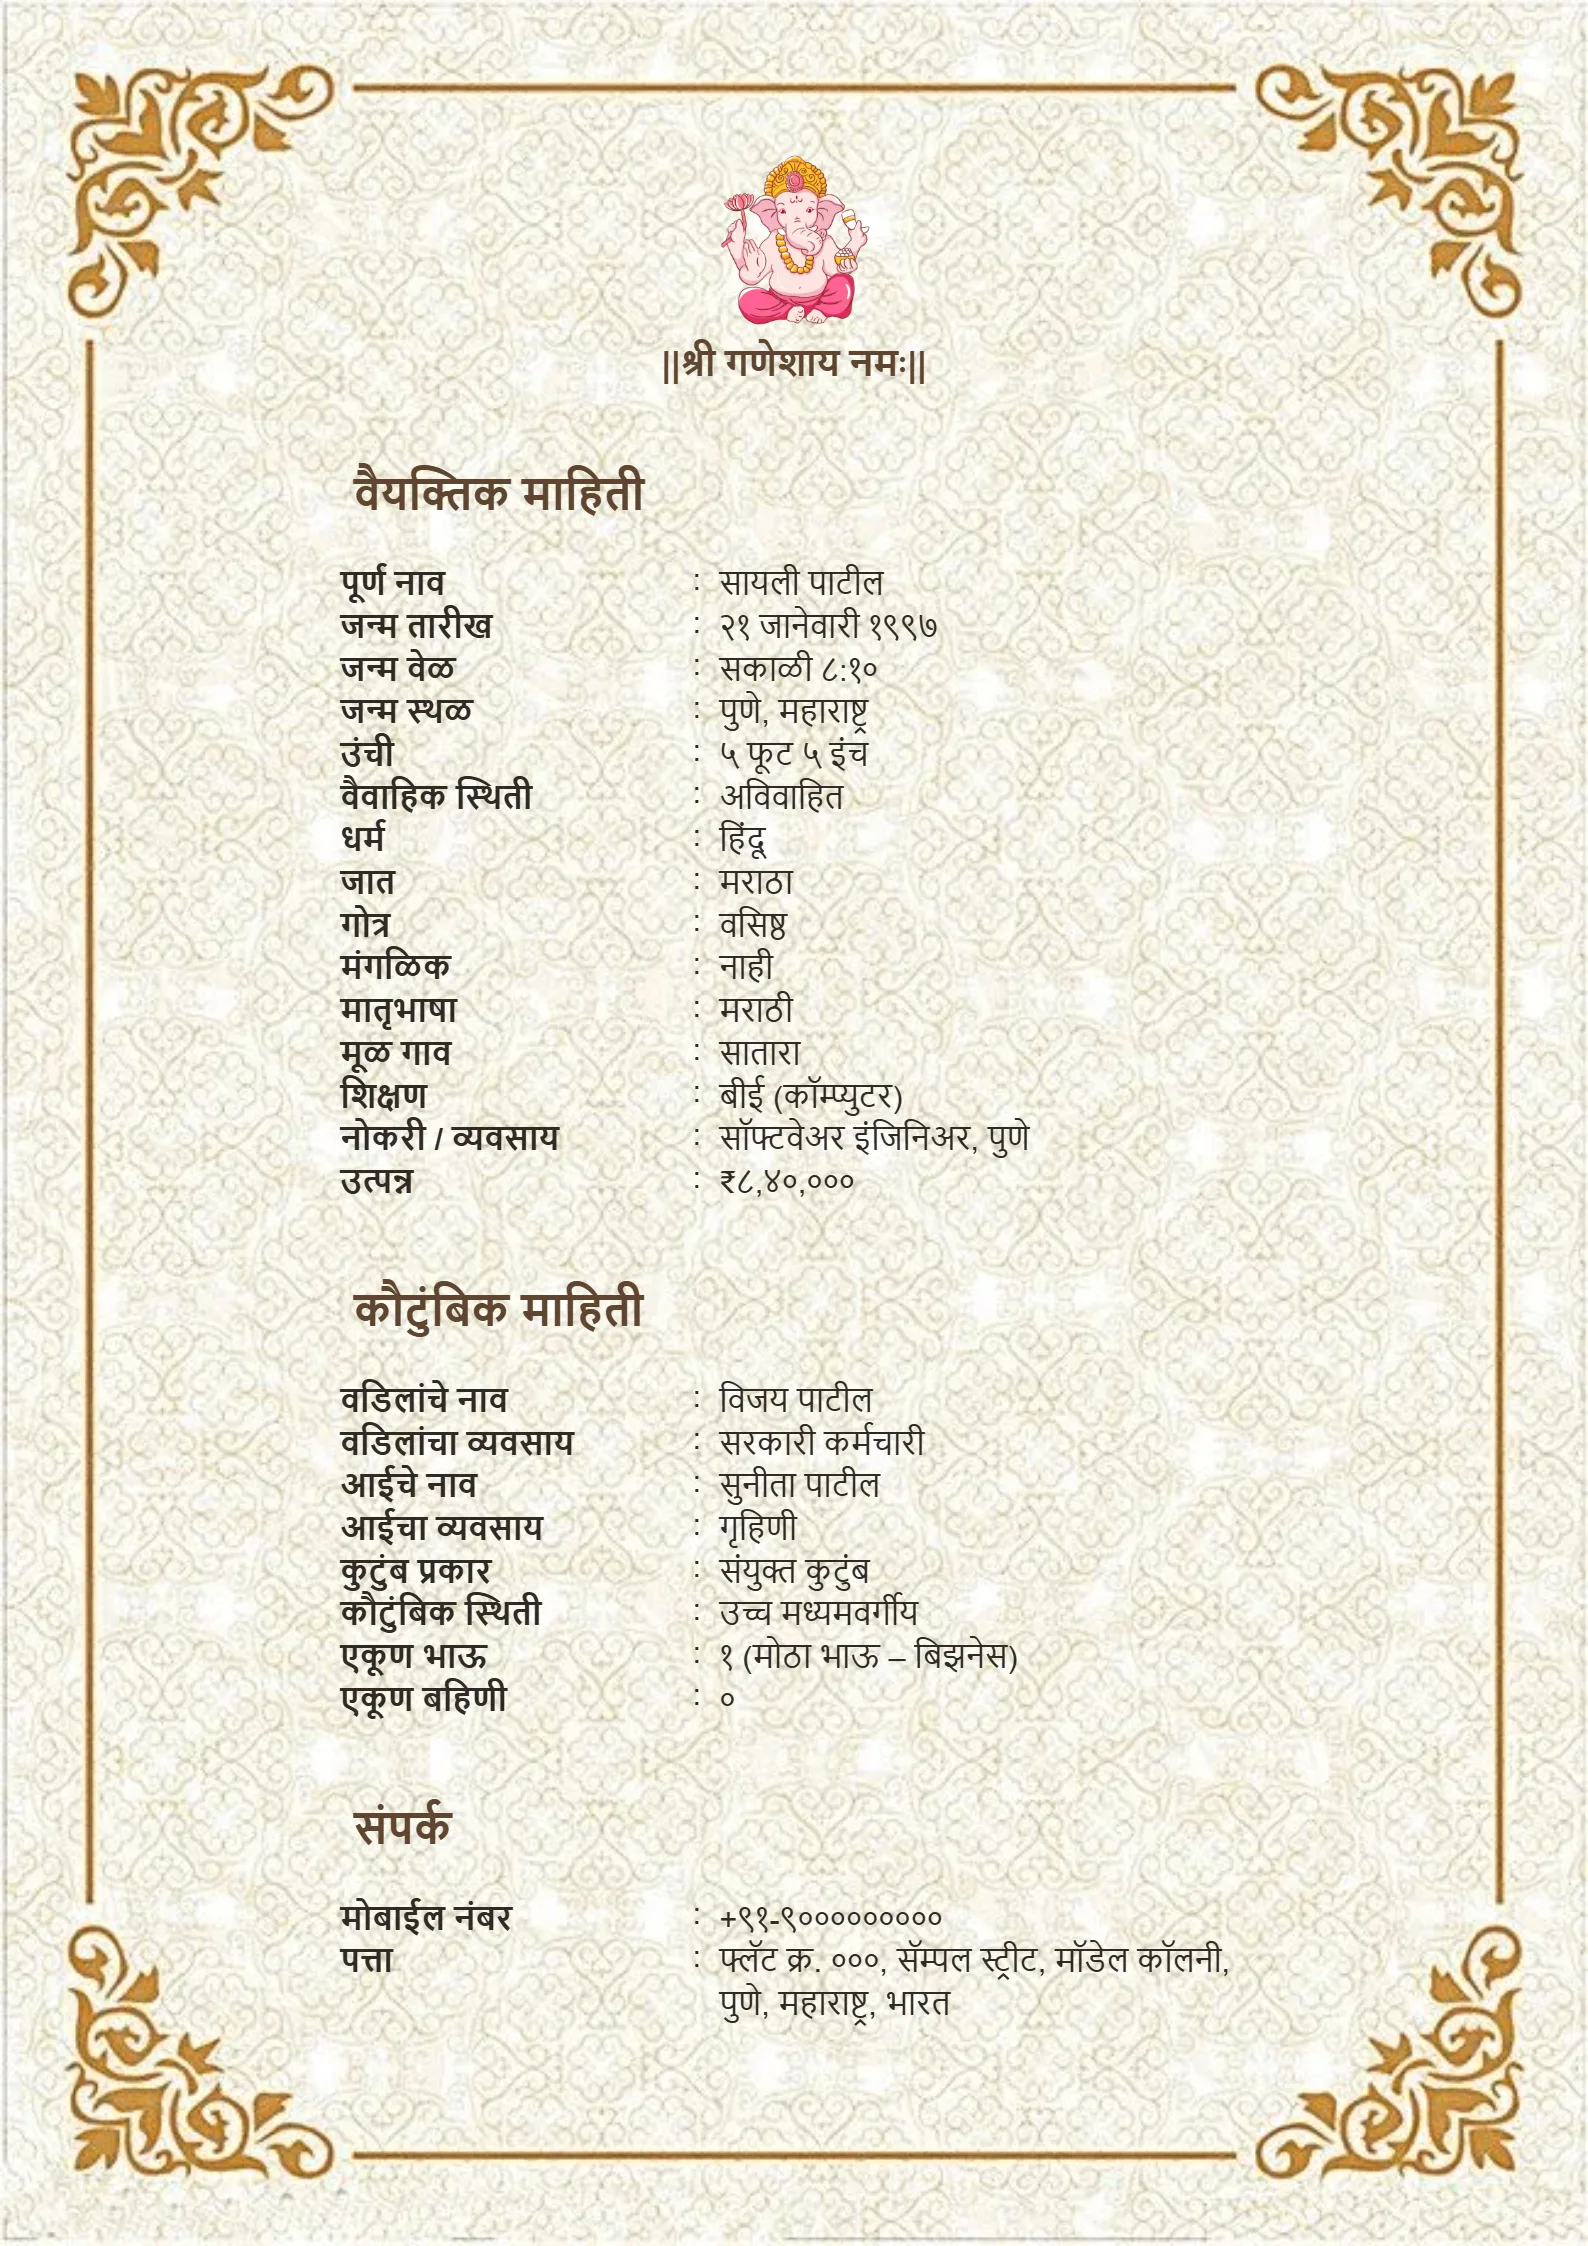 ||श्री गणेशाय नमः||
वैयक्तिक माहिती
पूर्ण नाव : सायली पाटील
जन्म तारीख : २१ जानेवारी १९९७
जन्म वेळ : सकाळी ८:१०
जन्म स्थळ : पुणे, महाराष्ट्र
उंची : ५ फूट ५ इंच
वैवाहिक स्थिती : अविवाहित
धर्म : हिंदू
जात : मराठा
गोत्र : वसिष्ठ
मंगळिक : नाही
मातृभाषा : मराठी
मूळ गाव : सातारा
शिक्षण : बीई (कॉम्प्युटर)
नोकरी / व्यवसाय : सॉफ्टवेअर इंजिनिअर, पुणे
उत्पन्न : ₹८,४०,०००
कौटुंबिक माहिती
वडिलांचे नाव : विजय पाटील
वडिलांचा व्यवसाय : सरकारी कर्मचारी
आईचे नाव : सुनीता पाटील
आईचा व्यवसाय : गृहिणी
कुटुंब प्रकार : संयुक्त कुटुंब
कौटुंबिक स्थिती : उच्च मध्यमवर्गीय
एकूण भाऊ : १ (मोठा भाऊ – बिझनेस)
एकूण बहिणी : ०
संपर्क
मोबाईल नंबर : +९१-९०००००००००
पत्ता : फ्लॅट क्र. ०००, सॅम्पल स्ट्रीट, मॉडेल कॉलनी,
पुणे, महाराष्ट्र, भारत